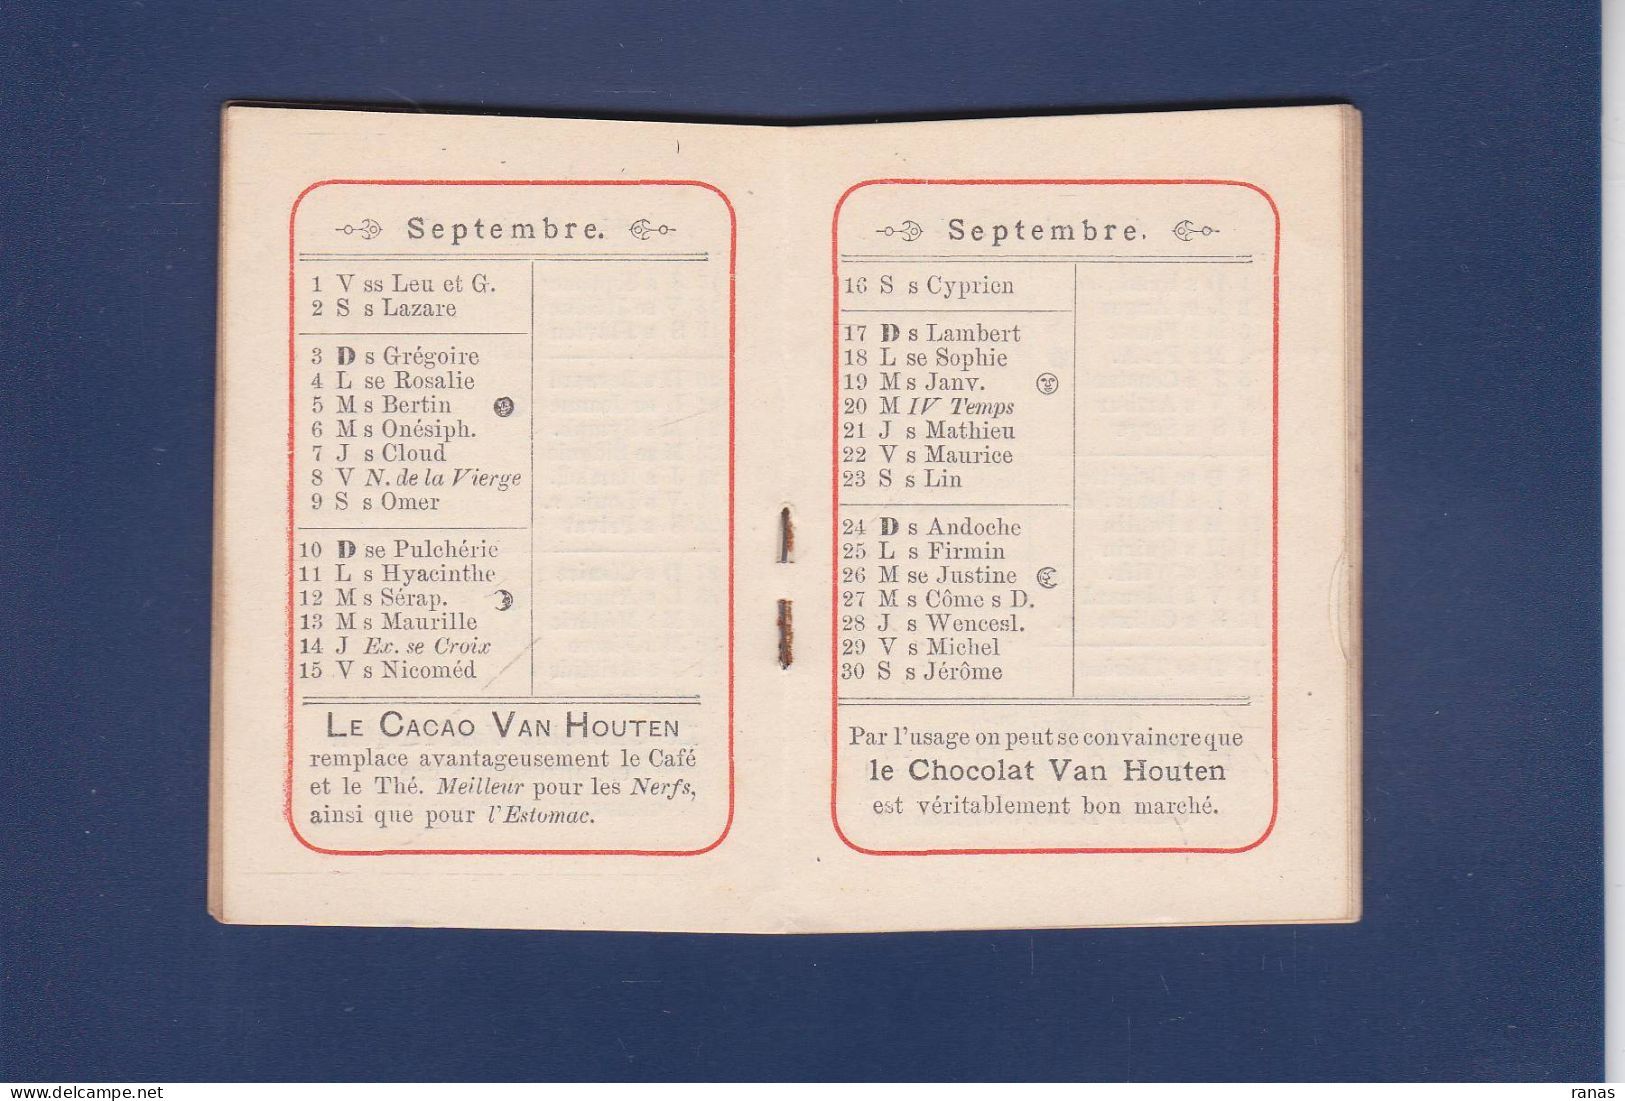 Septembre.
1 V ss Leu et G.
2 S s Lazare
3 D s Grégoire
4 L se Rosalie
5 M s Bertin
6 M s Onésiph.
7 J s Cloud
8 V N. de la Vierge
9 S s Omer
10 D se Pulchérie
11 L s Hyacinthe
12 M s Sérap.
13 M s Maurille
14 J Ex. se Croix
15 V s Nicoméd
LE CACAO VAN HOUTEN
remplace avantageusement le Café
et le Thé. Meilleur pour les Nerfs,
ainsi que pour l'Estomac.
Septembre.
16 S s Cyprien
17 D s Lambert
18 L se Sophie
19 M s Janv.
20 M IV Temps
21 J s Mathieu
22 V s Maurice
23 S s Lin
24 D s Andoche
25 L s Firmin
26 M se Justine
27 M s Côme s D.
28 J s Wencesl.
29 V s Michel
30 S s Jérôme
Par l'usage on peut se convaincre que
le Chocolat Van Houten
est véritablement bon marché.
www.delcampe.net
ranas